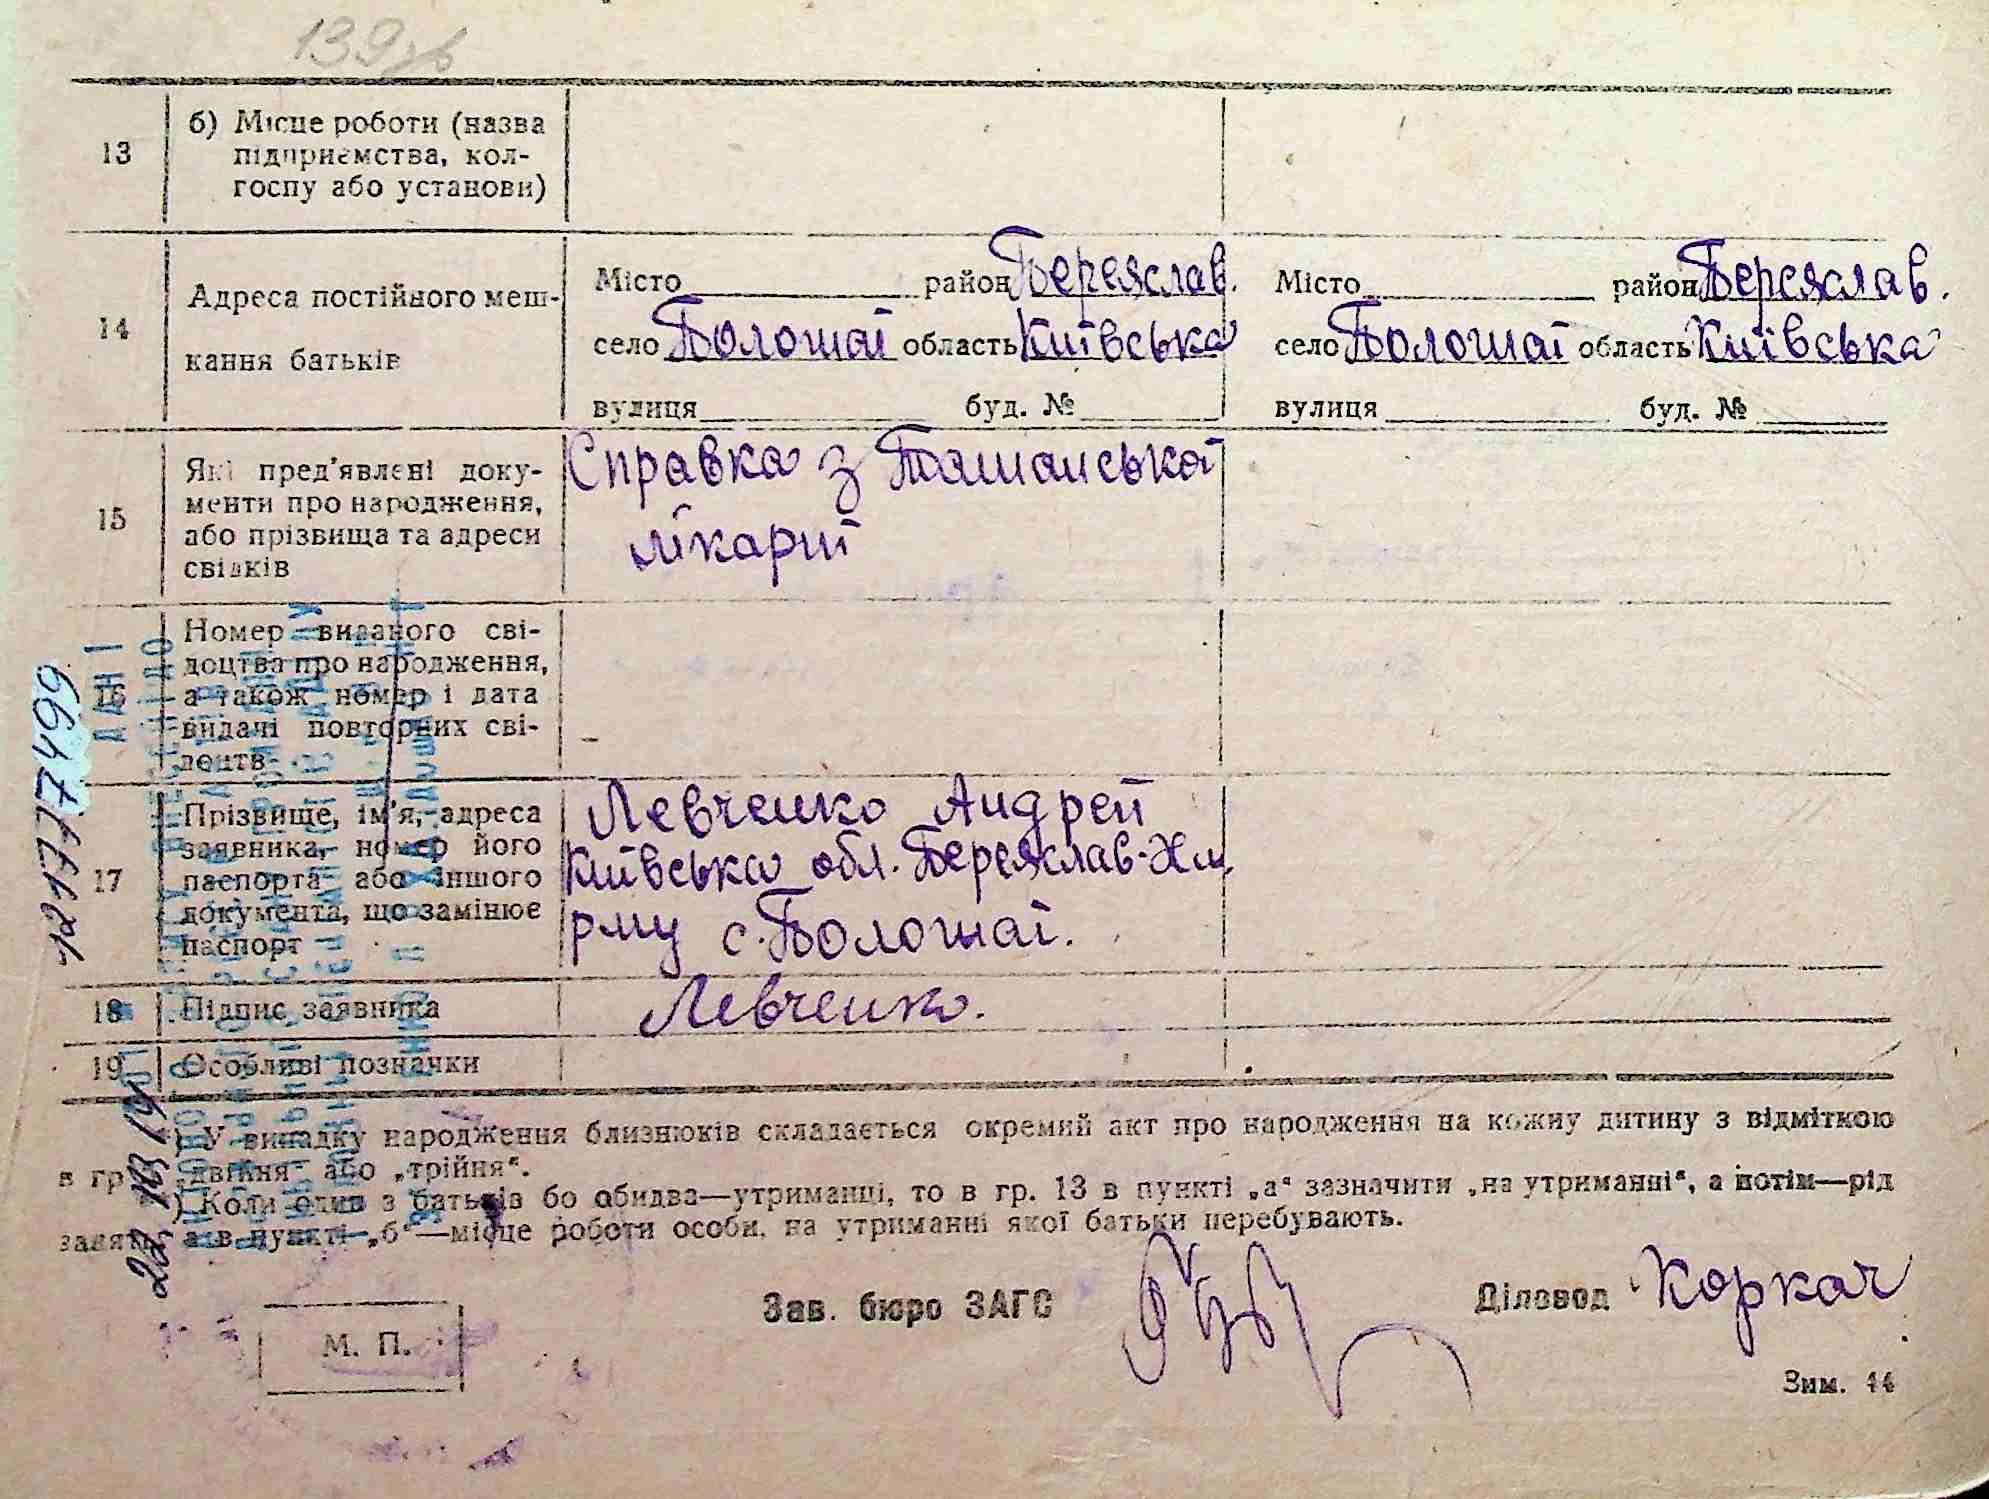 139 зв
13
б) Місце роботи (назва
підприємства, кол-
госпу або установи)
14
Адреса постійного меш-
кання батьків
Місто район Переяслав.
село Полошаї область Київська
вулиця буд. №
Місто район Переяслав.
село Полошаї область Київська
вулиця буд. №
15
Які пред'явлені доку-
менти про народження,
або прізвища та адреси
свідків
Справка з Ташанської
лікарні
16
Номер виданого сві-
доцтва про народження,
а також номер і дата
видачі повторних сві-
доцтв
17
Прізвище, ім'я, адреса
заявника, номер його
паспорта або іншого
документа, що замінює
паспорт
Левченко Андрей
Київська обл. Переяслав-Хм.
рму с. Полошаї.
18
Підпис заявника
Левченко.
19
Особливі позначки
*) У випадку народження близнюків складається окремий акт про народження на кожну дитину з відміткою
в гр „двійня“ або „трійня“.
) Коли один з батьків бо обидва—утриманці, то в гр. 13 в пункті „а“ зазначити „на утриманні“, а потім—рід
занять, а в пункті „б“—місце роботи особи, на утриманні якої батьки перебувають.
М. П.
Зав. бюро ЗАГС
Діловод Коркач
Зим. 44